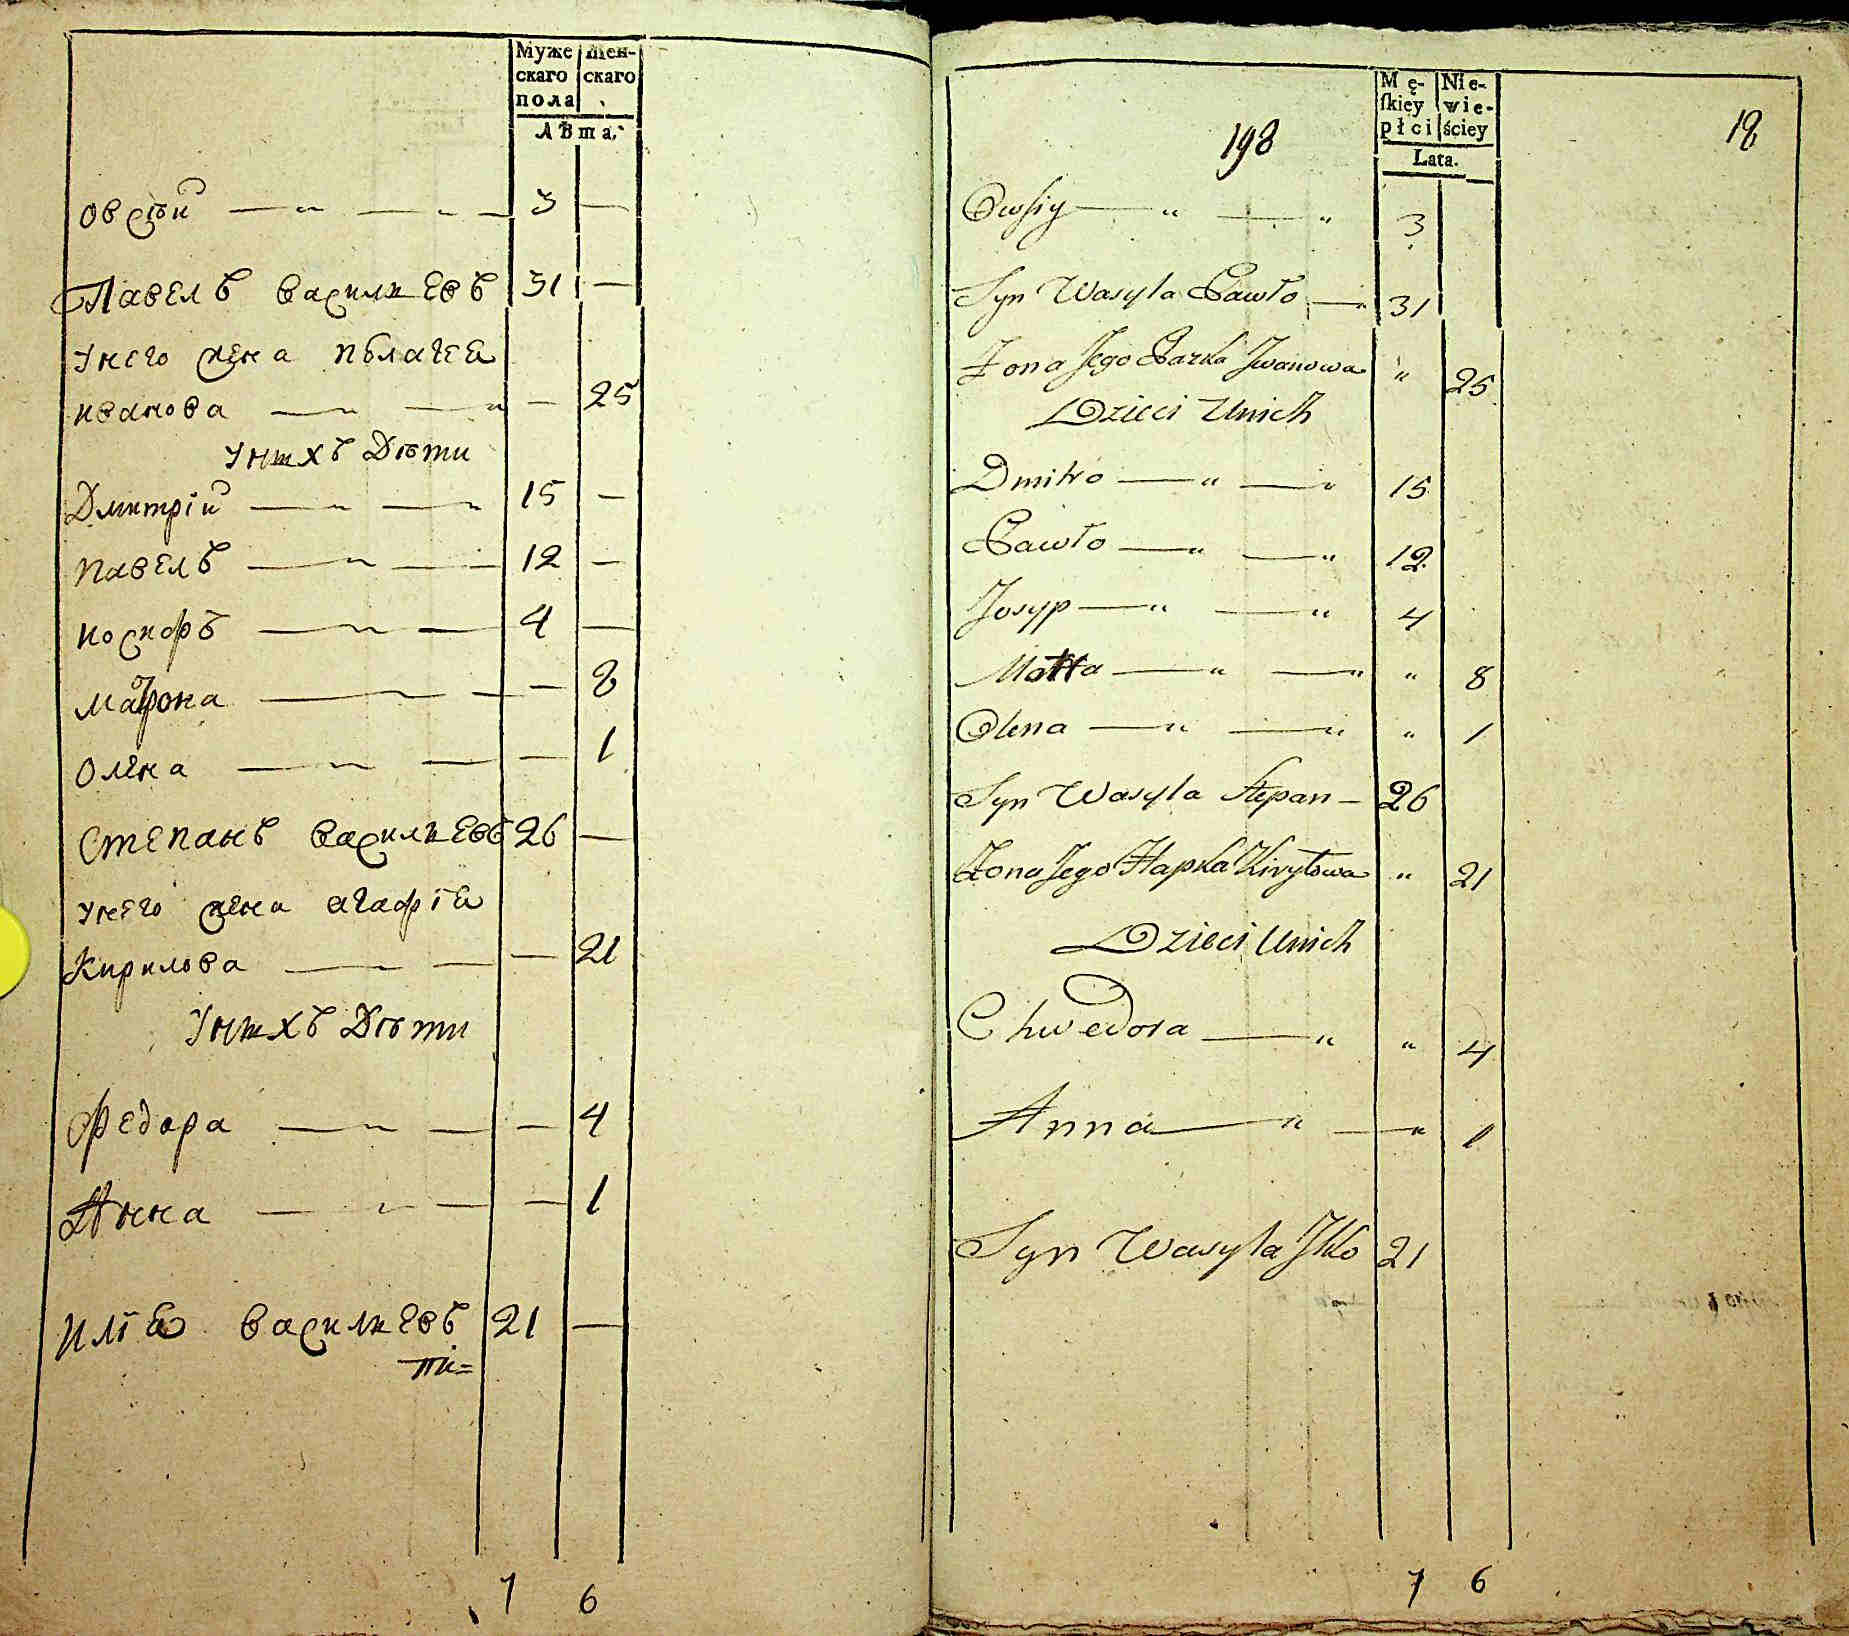 Муже
скаго
пола
Жен-
скаго
Лѣта.
Овсѣй — " — " — 3 —
Павелъ Василиевъ 31 —
Унего жена Пелагея
иванова — " — " — 25
Унихъ Дѣти
Дмитрій — " — " 15 —
Павелъ — " — 12 —
иосифъ — " — 4 —
Матрона — " — — 8
Олена — " — — 1
Степанъ Василиевъ 26 —
Унего жена агафія
Кирилова — " — — 21
Унихъ Дѣти
Федора — " — — 4
Анна — " — — 1
Илія Василиевъ 21 —
7 6
198
18
Mę-
skiey
płci
Nie-
wie-
ściey
Lata.
Owsiy — " — " 3
Syn Wasyla Pawło — 31
Żona Jego Parka Jwanowa " 25
Dzieci Unich
Dmitro — " — " 15
Pawło — " — " 12
Josyp — " — " 4
— " — " " 8
Olena — " — " " 1
Syn Wasyla Stepan — 26
Żona Jego Hapka Kiryłowa " 21
Dzieci Unich
Chwedora — " " 4
Anna — " — " 1
Syn Wasyla Jlko 21
7 6